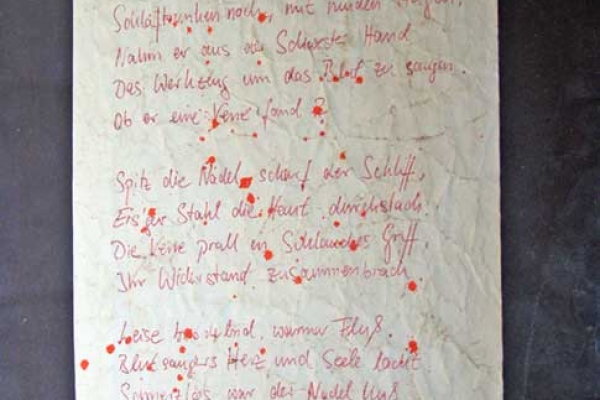 Schlaftrunken noch, mit müden Augen,
Nahm er aus der Schwester Hand
Das Werkzeug um das Blut zu saugen.
Ob er eine Vene fand?
Spitz die Nadel, scharf der Schliff,
Eis'ger Stahl die Haut durchstach.
Die Vene prall in Schlauches Griff,
Ihr Widerstand zusammenbrach
Leise brodelnd, warmer Fluß.
Blutsaugers Herz und Seele lacht
Schmerzlos war der Nadel Kuß